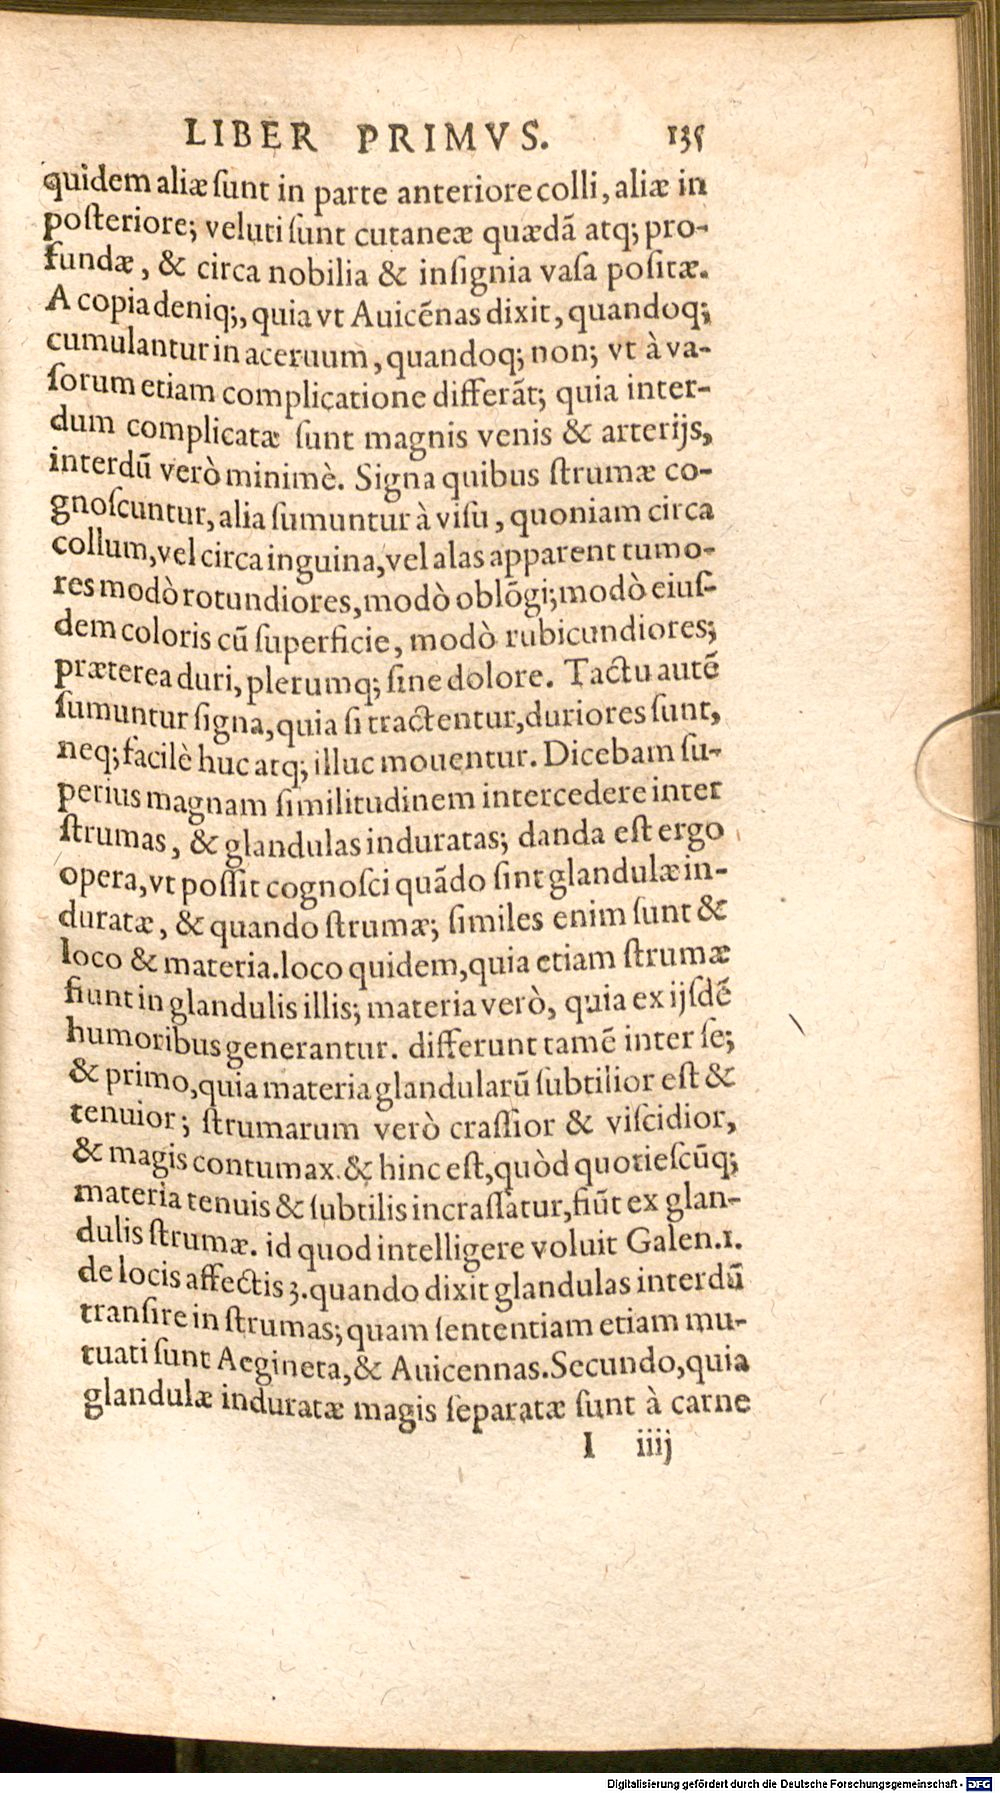 LIBER PRIMVS. 135
quidem aliæ ſunt in parte anteriore colli, aliæ in
poſteriore; veluti ſunt cutaneæ quædā atq; pro-
fundæ, & circa nobilia & inſignia vaſa poſitæ.
A copia deniq;, quia vt Auicēnas dixit, quandoq;
cumulantur in aceruum, quandoq; non; vt à va-
ſorum etiam complicatione differāt; quia inter-
dum complicatæ ſunt magnis venis & arterijs,
interdū verò minimè. Signa quibus ſtrumæ co-
gnoſcuntur, alia ſumuntur à viſu, quoniam circa
collum, vel circa inguina, vel alas apparent tumo-
res modò rotundiores, modò oblōgi; modò eiuſ-
dem coloris cū ſuperficie, modò rubicundiores;
præterea duri, plerumq; ſine dolore. Tactu autē
ſumuntur ſigna, quia ſi tractentur, duriores ſunt,
neq; facilè huc atq; illuc mouentur. Dicebam ſu-
perius magnam ſimilitudinem intercedere inter
ſtrumas, & glandulas induratas; danda eſt ergo
opera, vt poſſit cognoſci quādo ſint glandulæ in-
duratæ, & quando ſtrumæ; ſimiles enim ſunt &
loco & materia. loco quidem, quia etiam ſtrumæ
fiunt in glandulis illis; materia verò, quia ex ijſdē
humoribus generantur. differunt tamē inter ſe;
& primo, quia materia glandularū ſubtilior eſt &
tenuior; ſtrumarum verò craſſior & viſcidior,
& magis contumax. & hinc eſt, quòd quotieſcūq;
materia tenuis & ſubtilis incraſſatur, fiūt ex glan-
dulis ſtrumæ. id quod intelligere voluit Galen. 1.
de locis affectis 3. quando dixit glandulas interdū
tranſire in ſtrumas; quam ſententiam etiam mu-
tuati ſunt Aegineta, & Auicennas. Secundo, quia
glandulæ induratæ magis ſeparatæ ſunt à carne
I iiij
Digitalisierung gefördert durch die Deutsche Forschungsgemeinschaft - DFG